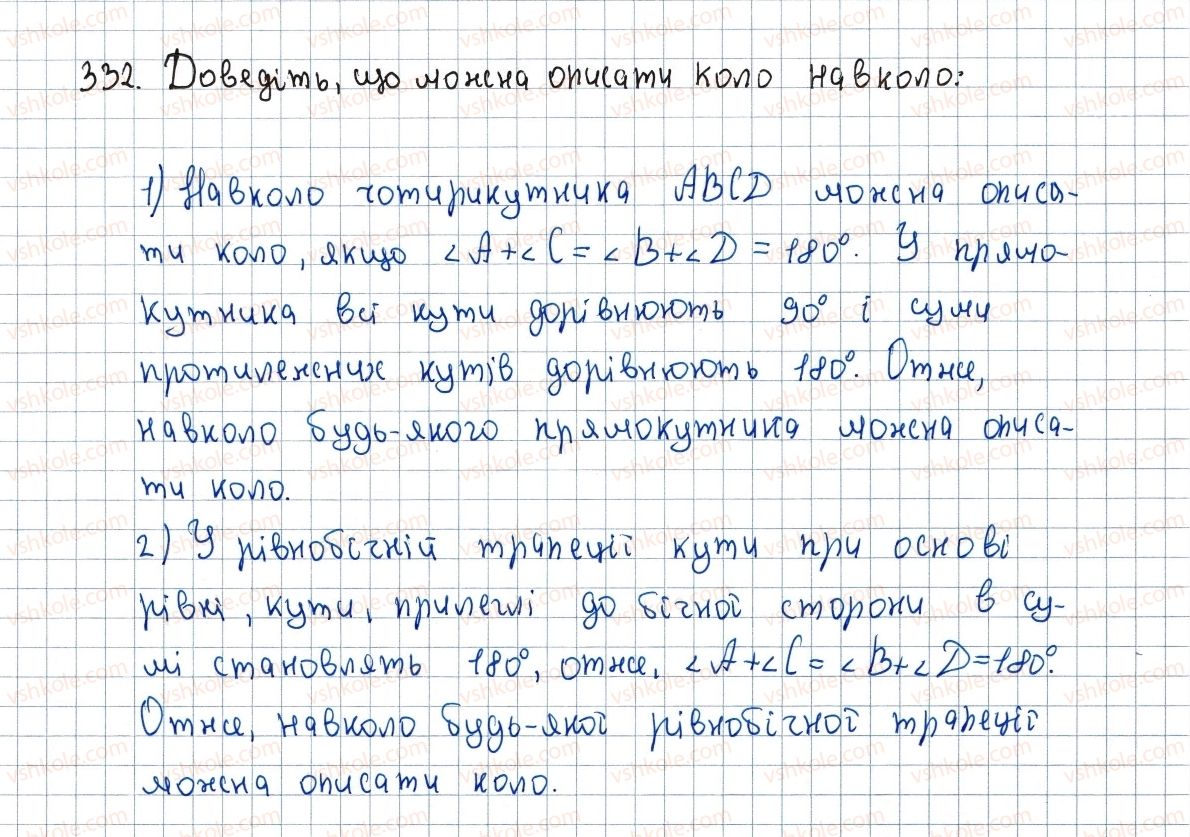 332. Доведіть, що можна описати коло навколо:
1) Навколо чотирикутника ABCD можна описа-
ти коло, якщо ∠A+∠C=∠B+∠D=180°. У прямо-
кутника всі кути дорівнюють 90° і суми
протилежних кутів дорівнюють 180°. Отже,
навколо будь-якого прямокутника можна описа-
ти коло.
2) У рівнобічній трапеції кути при основі
рівні, кути, прилеглі до бічної сторони в су-
мі становлять 180°, отже, ∠A+∠C=∠B+∠D=180°.
Отже, навколо будь-якої рівнобічної трапеції
можна описати коло.